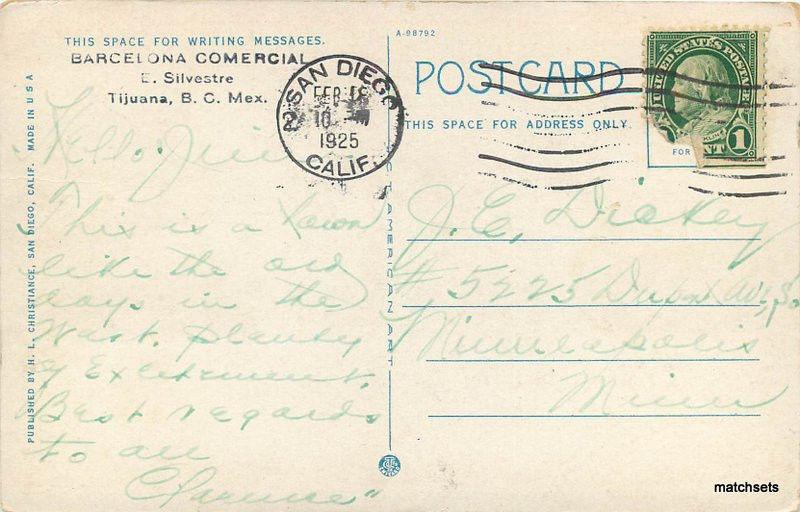 THIS SPACE FOR WRITING MESSAGES.
BARCELONA COMERCIAL
E. Silvestre
Tijuana, B. C. Mex.
Hello Jim
This is a town
like the old
days in the
West. Planty
of Excitement.
Best regards
to all
Clarence"
PUBLISHED BY H. L. CHRISTIANCE, SAN DIEGO, CALIF. MADE IN U S A
A-98792
POST CARD
THIS SPACE FOR ADDRESS ONLY
SAN DIEGO
FEB 18
10
2
1925
CALIF.
UNITED STATES POSTAGE
1
FOR
J. E. Dickey
# 5225 Dupont Av, So.
Minneapolis
Minn
AMERICAN ART
matchsets